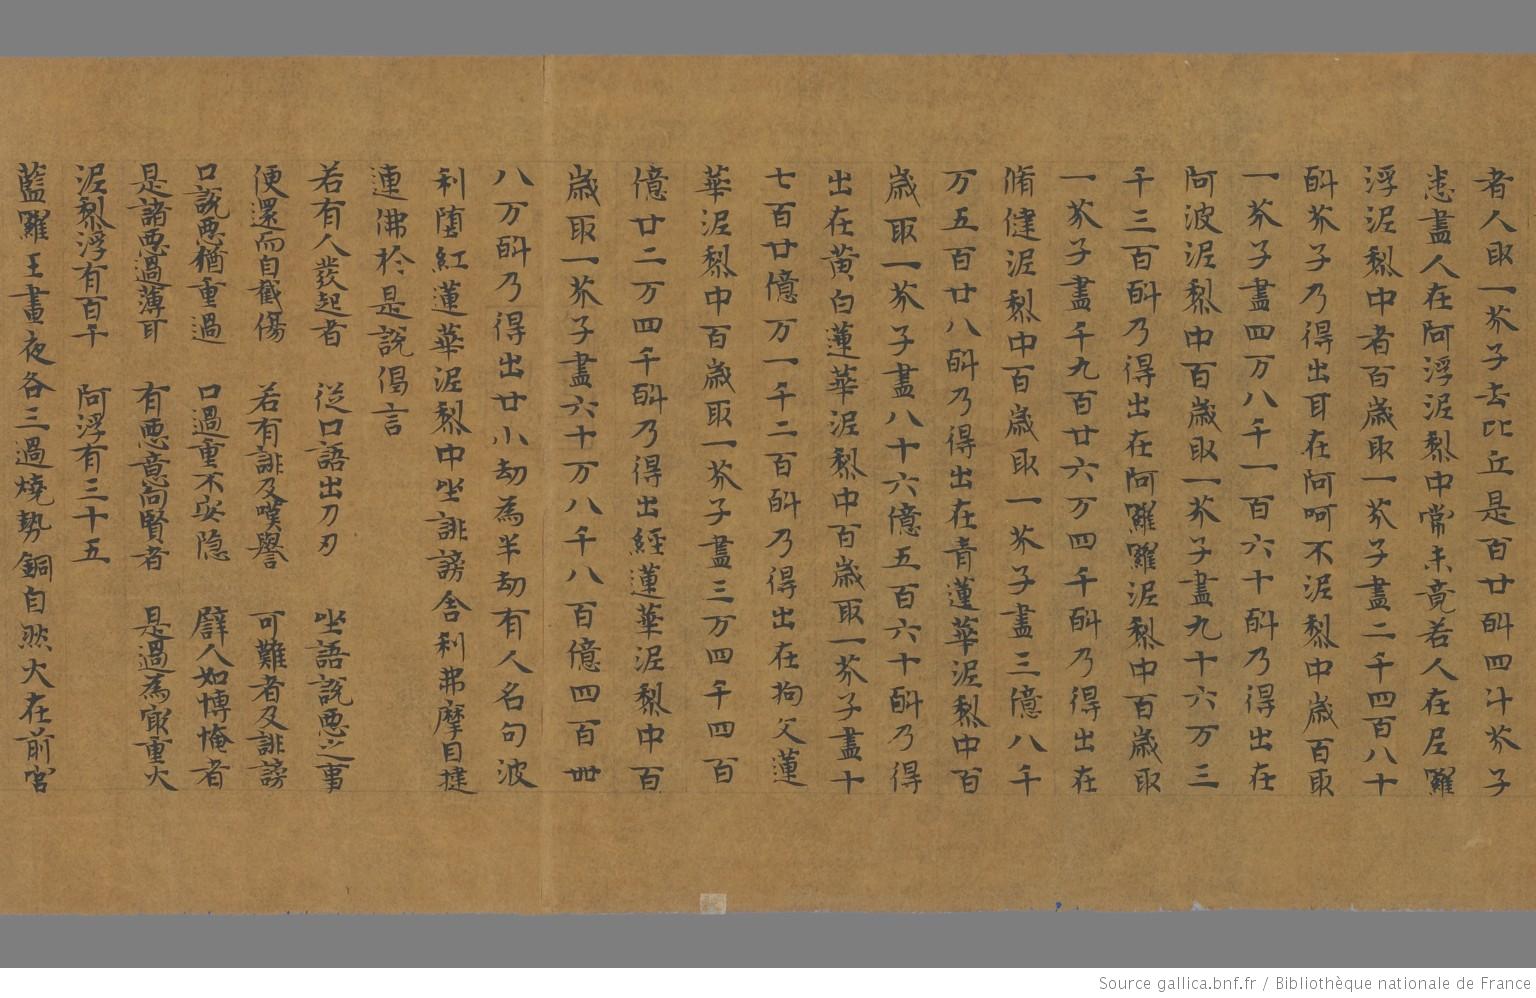 者人取一芥子去比丘是百廿斛四斗芥子
悉盡人在阿浮泥梨中常未竟若人在尼羅
浮泥梨中者百歲取一芥子盡二千四百八十
斛芥子乃得出耳在阿呵不泥梨中歲百取
一芥子盡四万八千一百六十斛乃得出在
阿波泥梨中百歲取一芥子盡九十六万三
千三百斛乃得出在阿羅羅泥梨中百歲取
一芥子盡千九百廿六万四千斛乃得出在
脩健泥梨中百歲取一芥子盡三億八千
万五百廿八斛乃得出在青蓮華泥梨中百
歲取一芥子盡八十六億五百六十斛乃得
出在黃白蓮華泥梨中百歲取一芥子盡十
七百廿億万一千二百斛乃得出在拘文蓮
華泥梨中百歲取一芥子盡三万四千四百
億廿二万四千斛乃得出經蓮華泥梨中百
歲取一芥子盡六十万八千八百億四百卌
八万斛乃得出廿小劫為半劫有人名句波
利墮紅蓮華泥梨中坐誹謗舍利弗摩目揵
連佛於是說偈言
若有人發起者 從口語出刀刃 坐語說悪之事
便還而自截傷 若有誹及嘆譽 可難者及誹謗
口說悪猶重過 口過重不安隐 譬人如博掩者
是諸悪過薄耳 有悪意向賢者 是過為㝡重大
泥梨浮有百千 阿浮有三十五
藍羅王晝夜各三過燒熱銅自然火在前宮
Source gallica.bnf.fr / Bibliothèque nationale de France